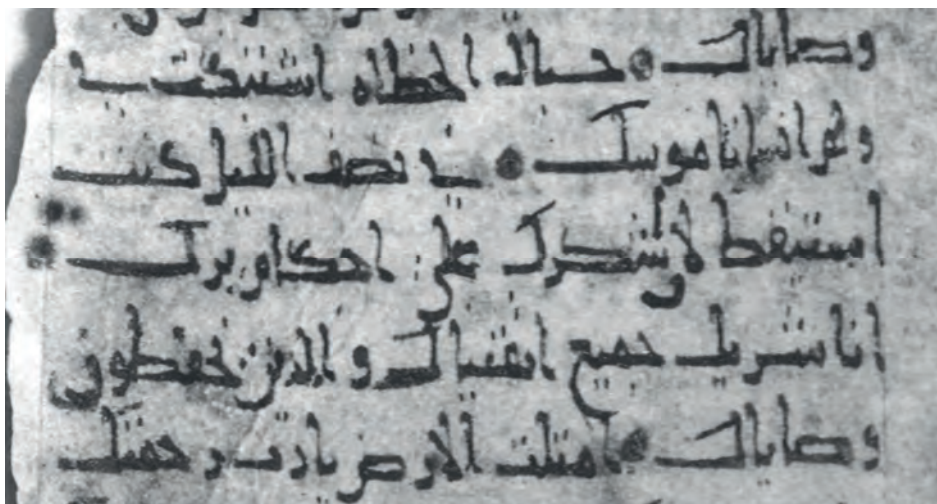 وصاياك • حبال الخطاه اشتبكت بي
ولم انسا ناموسك • في نصف الليل كنت
استيقظ لاشكرك على احكام برك
انا شريك جميع اتقياك والذين يحفظون
وصاياك • امتلت الارض يا رب رحمتك